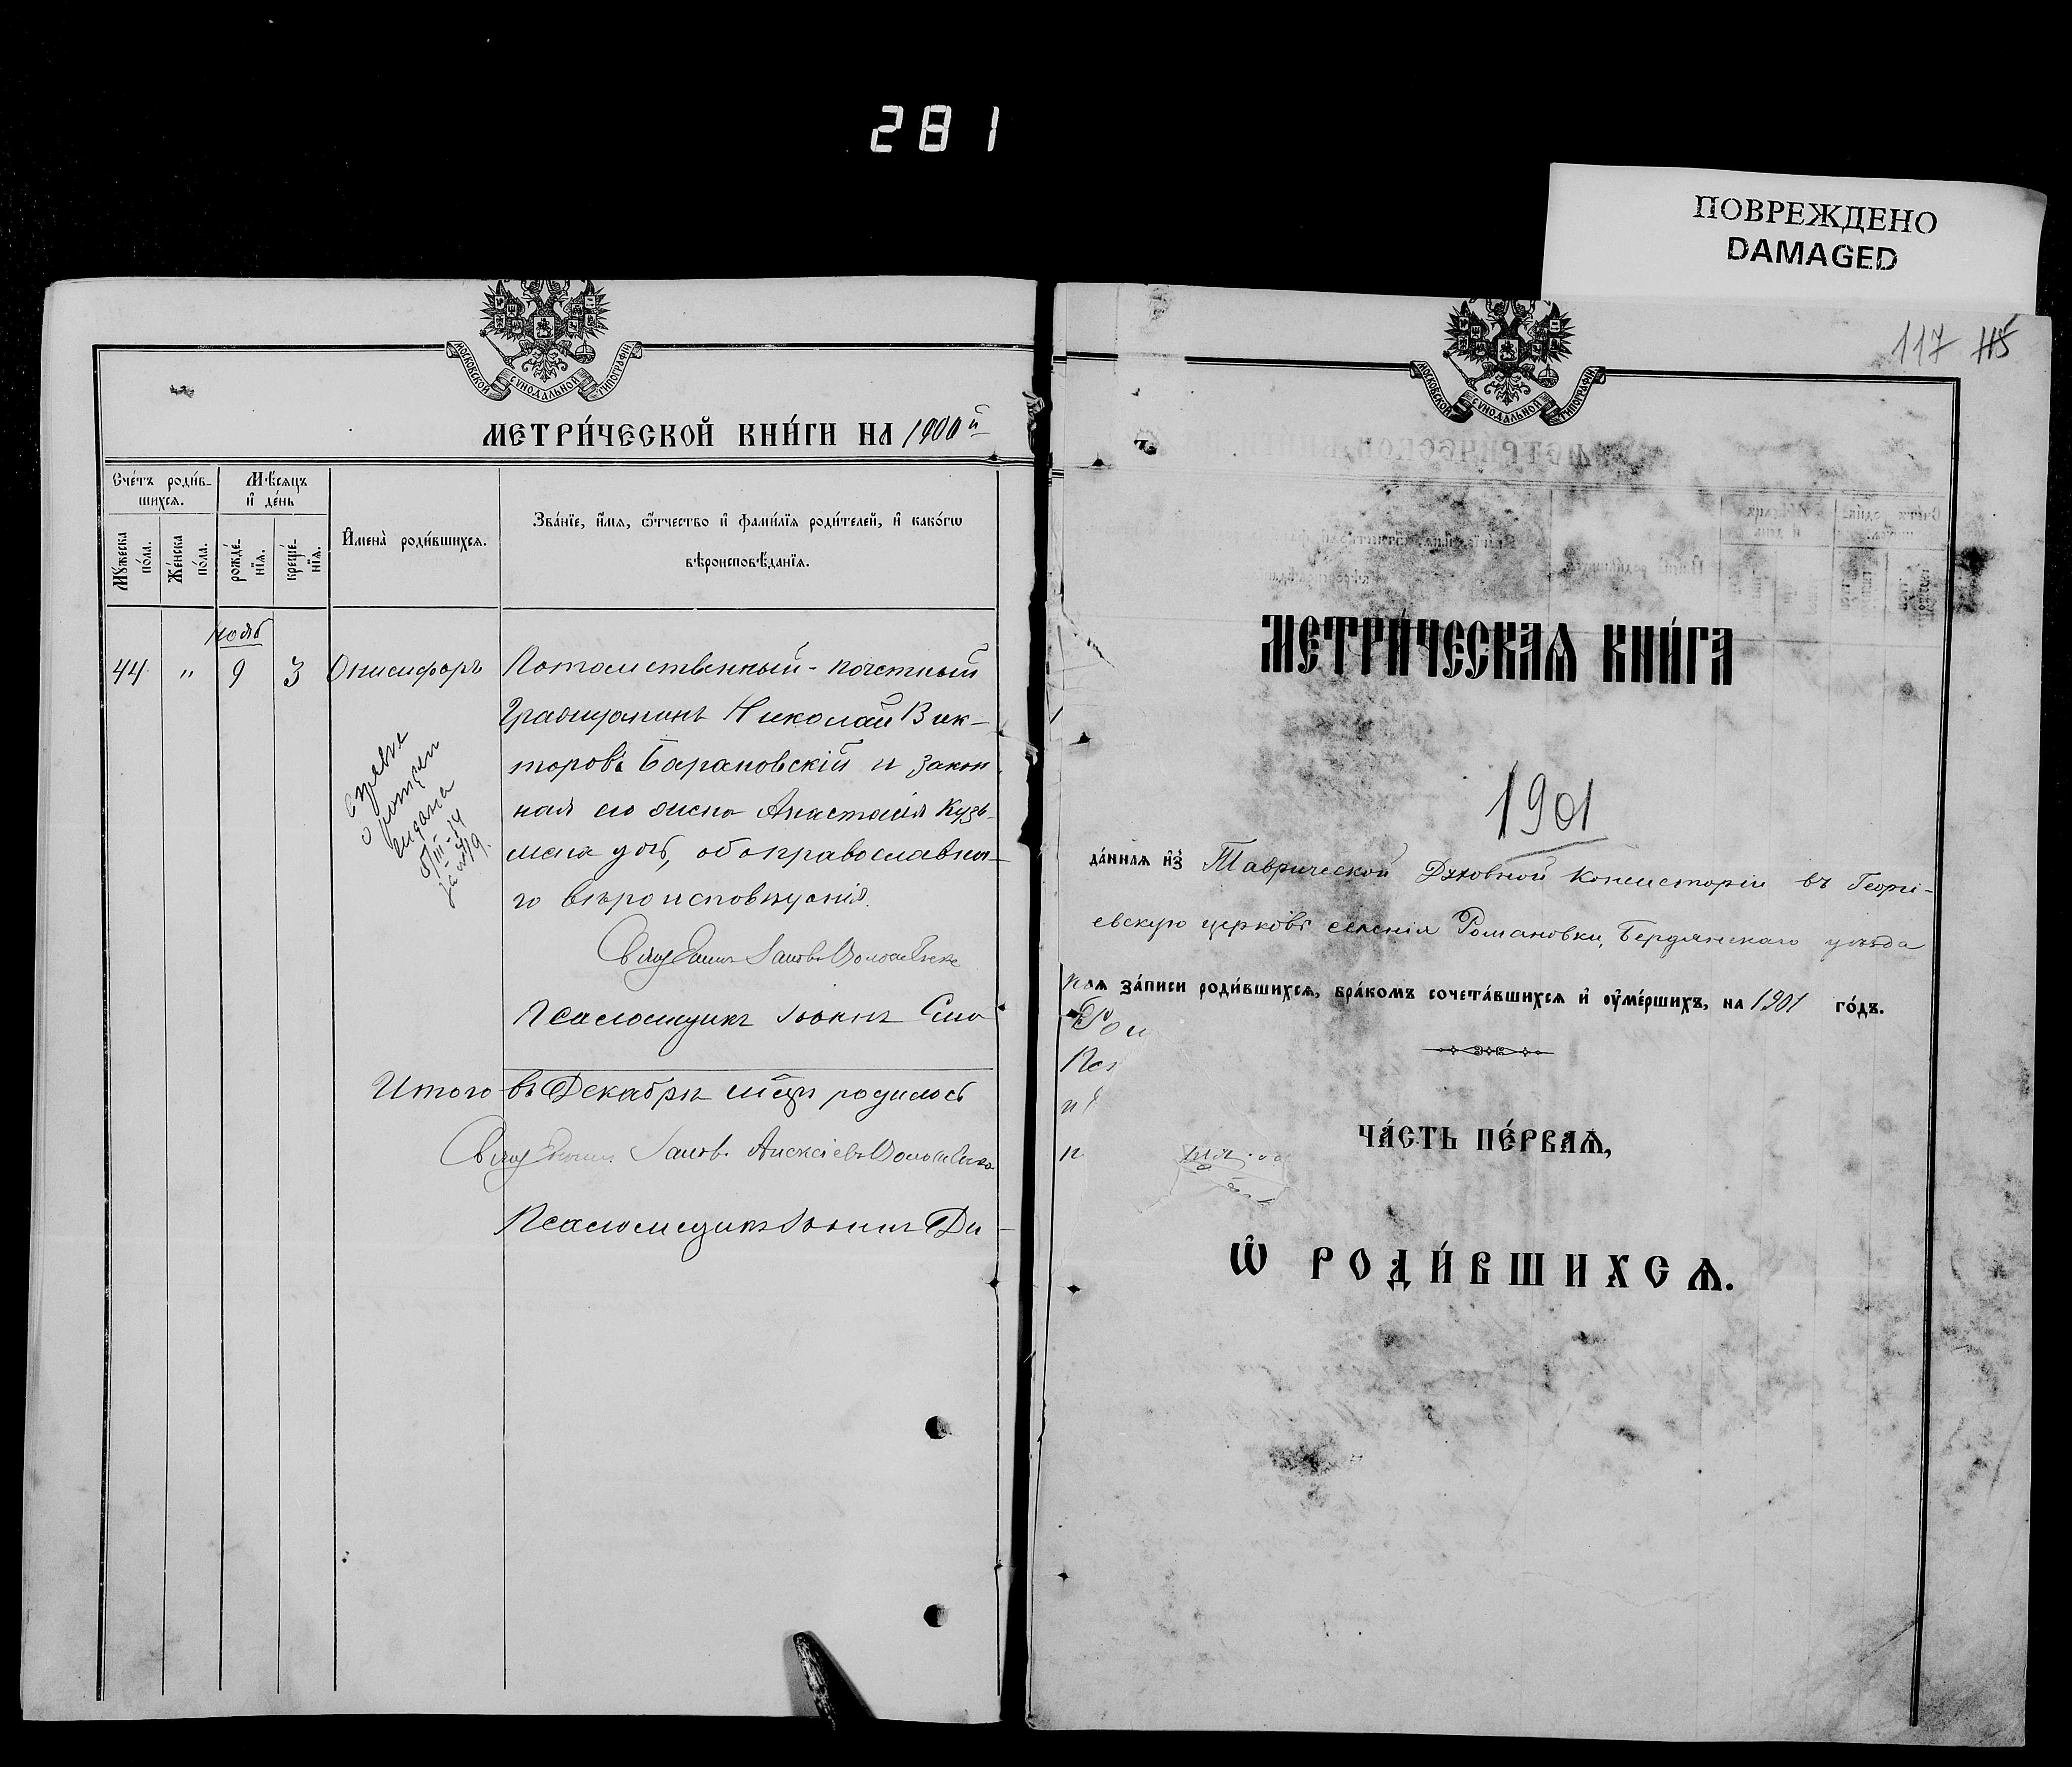 281
ПОВРЕЖДЕНО
DAMAGED
117 115
МОСКОВСКОЙ СѴНОДАЛЬНОЙ ТИПОГРАФІИ
МЕТРИ́ЧЕСКОЙ КНИ́ГИ НА 1900й
Сче́тъ роди́в-
шихсѧ.
Мѣ́сѧцъ
и҆ де́нь
Мꙋ́жеска
по́ла.
Же́нска
по́ла.
рожде́-
нїѧ.
креще́-
нїѧ.
И҆мена̀ роди́вшихсѧ.
Зва́нїе, и҆́мѧ, ѻ҆́тчество и҆ фами́лїѧ роди́телей, и҆ како́гѡ
вѣроисповѣ́данїѧ.
Нояб
44 " 9 3 Онисифоръ Потомственный-почетный
Гражданинъ Николай Вик-
торовъ Барановскій и закон
ная его жена Анастасія Кузь-
мина дочь, оба православна-
го вѣроисповѣданія.
выдана
Псаломщикъ Іоаннъ
Итого въ Декабрѣ мѣсяцѣ родилось
Іаковъ Алексіевъ
Псаломщикъ Іоаннъ Ди-
МОСКОВСКОЙ СѴНОДАЛЬНОЙ ТИПОГРАФІИ
МЕТРИ́ЧЕСКАѦ КНИ́ГА
1901
да́ннаѧ и҆з̾ Таврической Духовной Консисторіи въ Георгі-
евскую церковь селенія Романовки, Бердянскаго уѣзда
длѧ за́писи роди́вшихсѧ, бра́комъ сочета́вшихсѧ и҆ ᲂу҆ме́ршихъ, на 1901 го́дъ.
ЧА́СТЬ ПЕ́РВАѦ,
Ѡ҆ РОДИ́ВШИХСѦ.